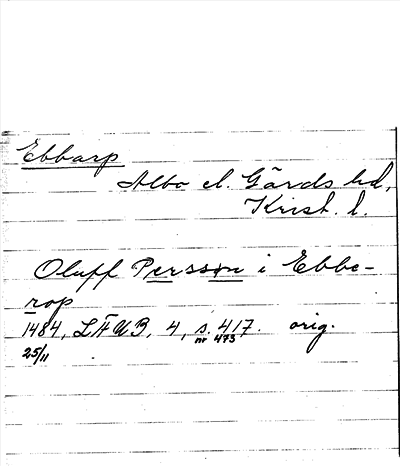 Ebbarp
Albo el. Gärds hd,
Krist. l.
Oluff Persson i Ebbe-
rop
1484, LÄUB, 4, s. 417. orig.
25/11 nr 473